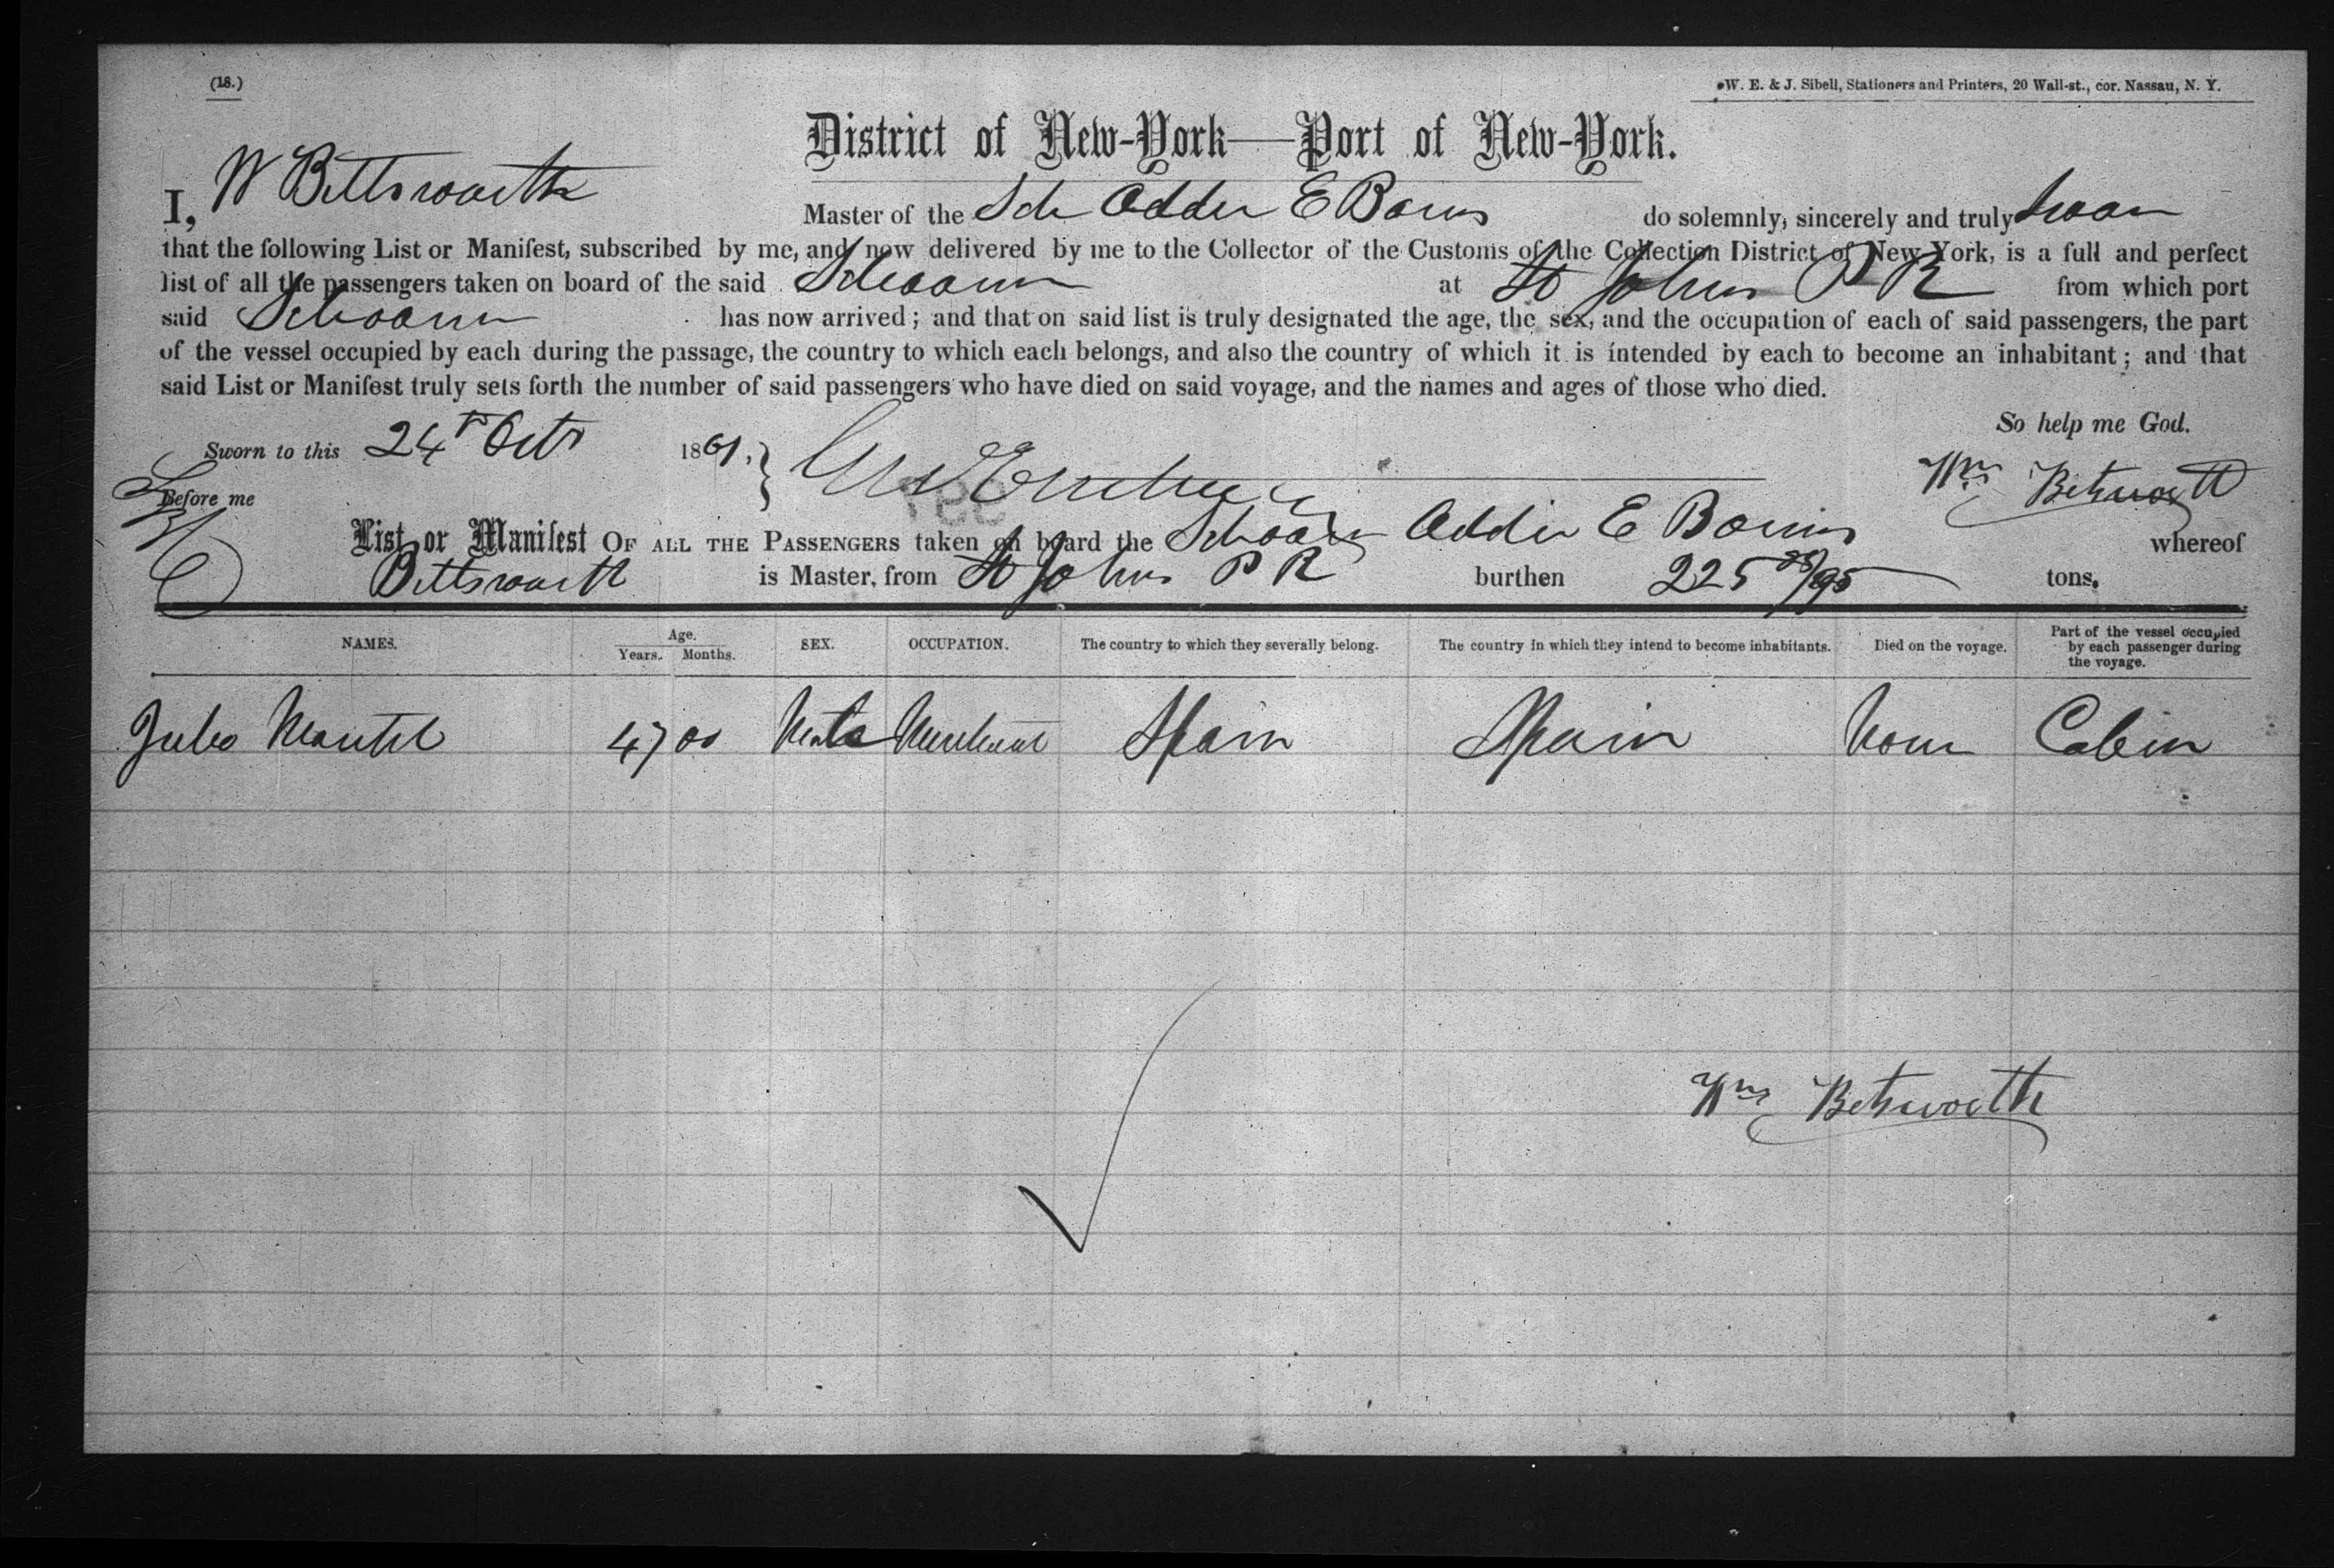 (18.)
W. E. & J. Sibell, Stationers and Printers, 20 Wall-st., cor. Nassau, N. Y.
District of New-York—Port of New-York.
I, W Bettsworth Master of the Sch Addie E Barns do solemnly, sincerely and truly swear
that the following List or Manifest, subscribed by me, and now delivered by me to the Collector of the Customs of the Collection District of New York, is a full and perfect
list of all the passengers taken on board of the said Schooner at St Johns P R from which port
said Schooner has now arrived; and that on said list is truly designated the age, the sex, and the occupation of each of said passengers, the part
of the vessel occupied by each during the passage, the country to which each belongs, and also the country of which it is intended by each to become an inhabitant; and that
said List or Manifest truly sets forth the number of said passengers who have died on said voyage, and the names and ages of those who died.
So help me God.
Sworn to this 24th Octr 1861,
Wm Betsworth
Before me
List or Manifest OF ALL THE PASSENGERS taken on board the Schooner Addie E Barnes whereof
Bettsworth is Master, from St Johns P R burthen 225 28/95 tons.
NAMES. Age. Years. Months. SEX. OCCUPATION. The country to which they severally belong. The country in which they intend to become inhabitants. Died on the voyage. Part of the vessel occupied by each passenger during the voyage.
Julio 47 00 Male Merchant Spain Spain None Cabin
Wm Betsworth